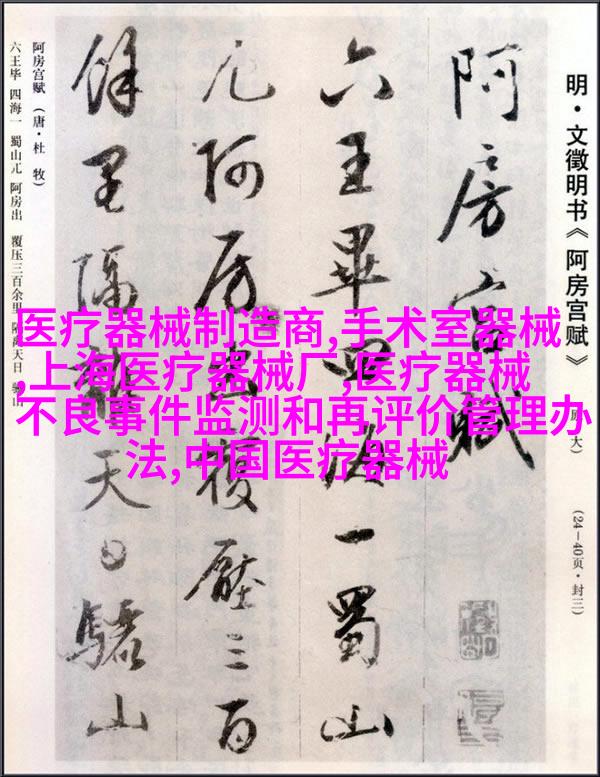 明·文徵明书《阿房宫赋》
大）
（24—40页·封三）
阿房宮賦
六王畢四海一蜀山
兀阿房出復壓三百
餘里隔離天日驪山
阿房宫赋（唐·杜牧）
六王毕 四海一 蜀山兀 阿房出 覆压三百余里 隔离天日 骊山
医疗器械制造商,手术室器械
,上海医疗器械厂,医疗器械
不良事件监测和再评价管理办
法,中国医疗器械